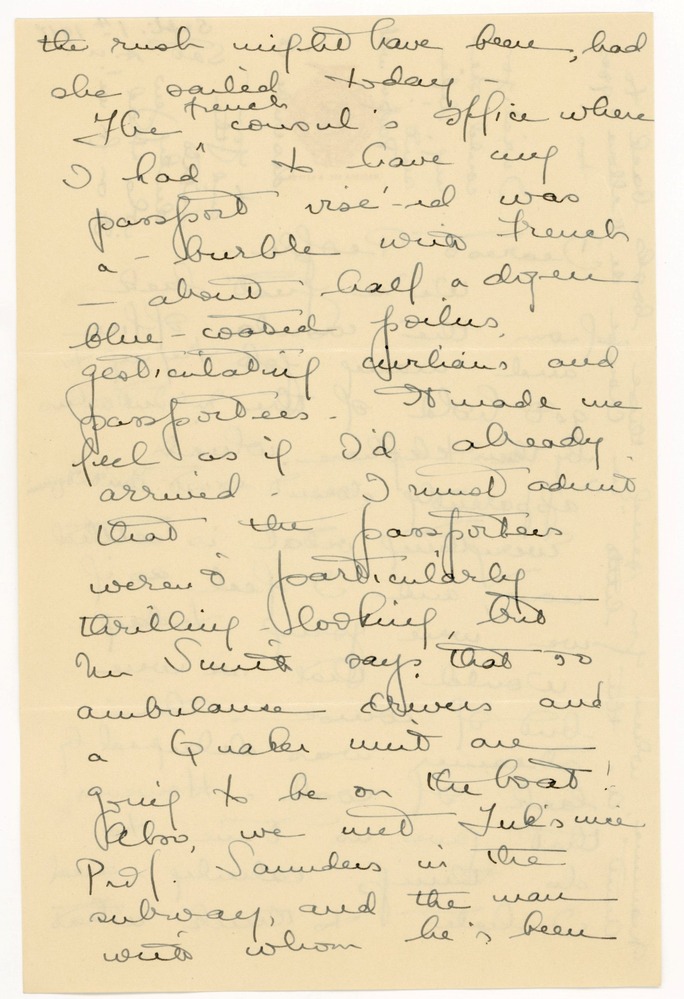 the rush might have been, had
she sailed today –
The ^french consul's office where
I had to have my
passport visé-ed was
a – burble with French
– about half a dozen
blue-coated poilus,
gesticulating civilians and
passportees. It made me
feel as if I'd already
arrived – I must admit
that the passportees
weren't particularly
thrilling-looking, but
Mr Smith says that 50
ambulance drivers and
a Quaker unit are
going to be on the boat!
Also, we met Jul's nice
Prof. Saunders in the
subway, and the man
with whom he's been